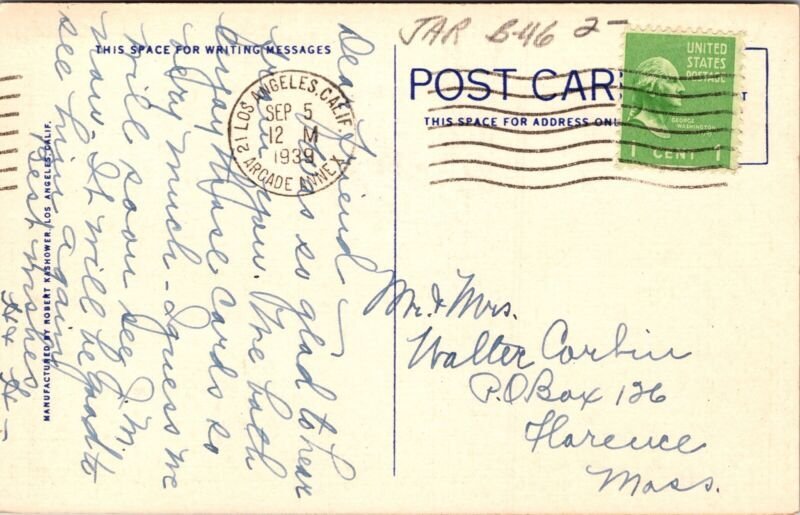 JAR B-46 2-
THIS SPACE FOR WRITING MESSAGES
POST CAR
THIS SPACE FOR ADDRESS ONL
UNITED
STATES
POSTAGE
GEORGE
WASHINGTON
1 CENT 1
LOS ANGELES, CALIF.
21
SEP 5
12 M
1939
ARCADE ANNEX
Dear Friend -
so glad to hear
from you. We both
enjoy those cards so
very much - I guess we
will soon see J.M.
now. It will be good to
see him again
Best wishes
MANUFACTURED BY ROBERT KASHOWER, LOS ANGELES, CALIF.
Mr. & Mrs.
Walter Corbin
P.O Box 126
Florence
Mass.